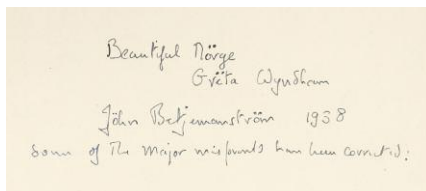 Beautiful Nörge
Grëta Wyndham
Jöhn Betjemanström 1938
Some of the major misprints have been corrected: